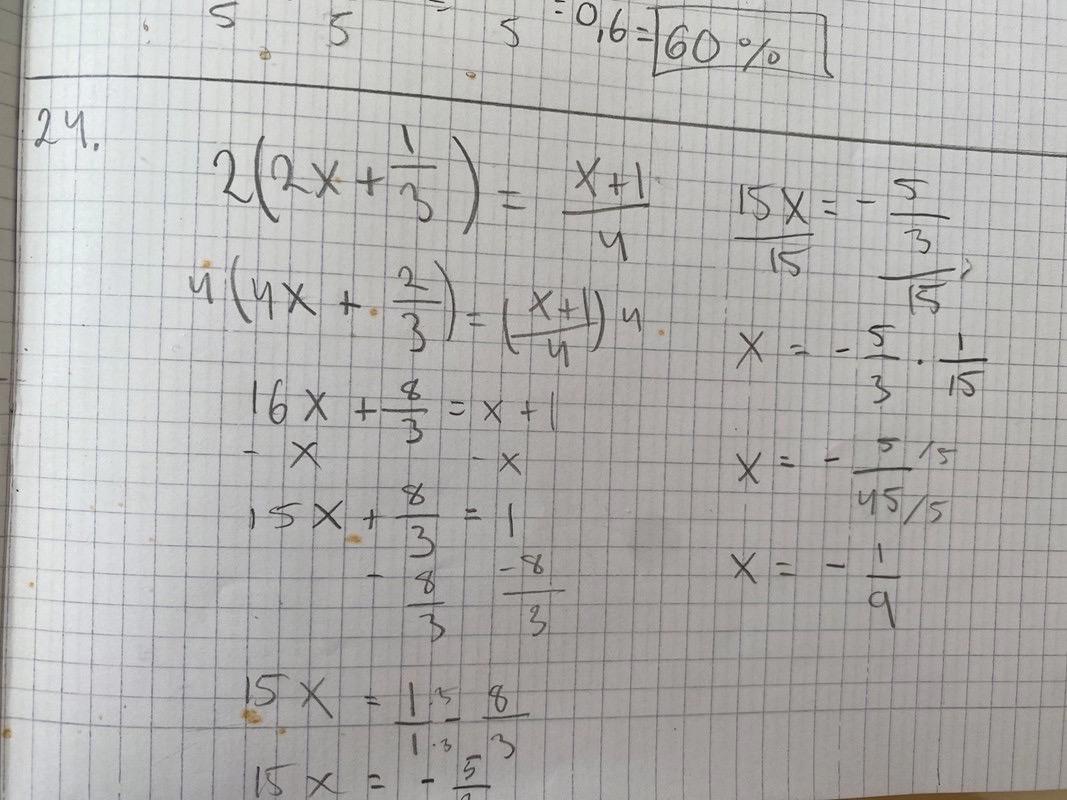 5 5 = 5 = 0,6 = 60 %
24.
2(2x + 1/3) = (x+1)/4
4(4x + 2/3) = ((x+1)/4) 4
16x + 8/3 = x + 1
- x - x
15x + 8/3 = 1
- 8/3 -8/3
15x = 1/1 - 8/3
15x = - 5
15x/15 = - (5/3)/15
x = - 5/3 · 1/15
x = - 5/45 /5 /5
x = - 1/9